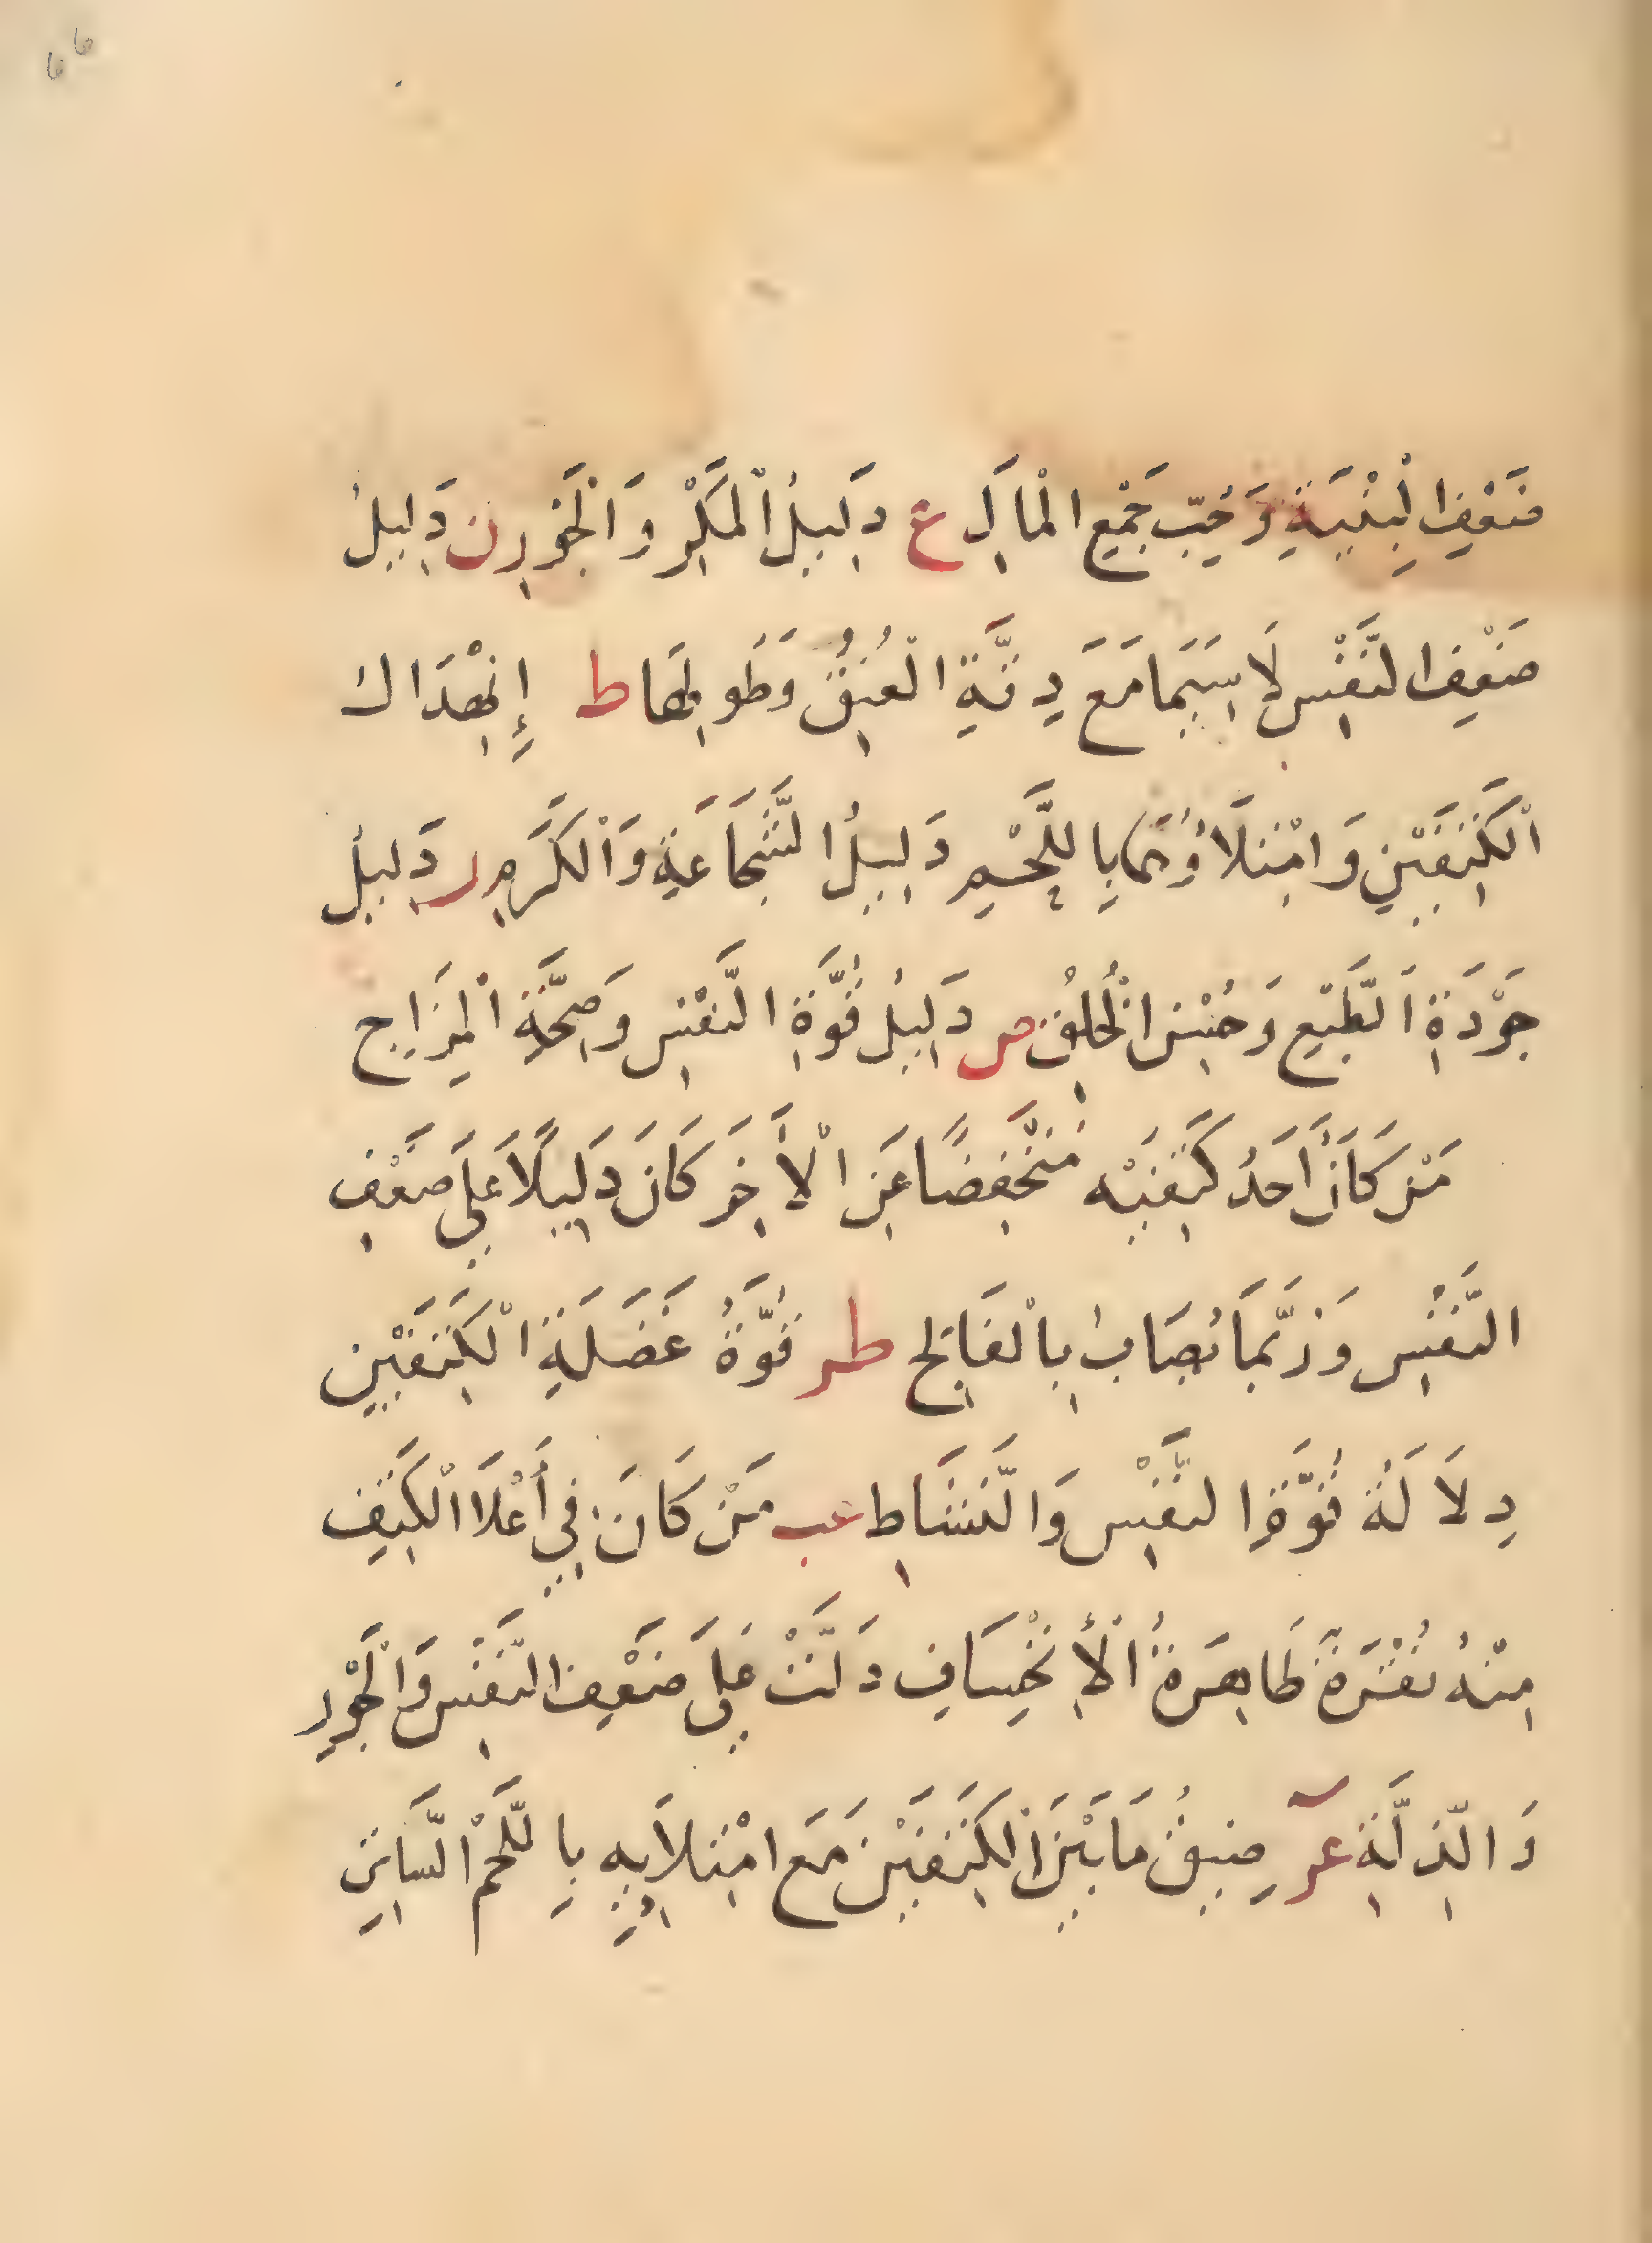 ٦٦
ضَعْفِ الْبِنْيَةِ وَحُبِّ جَمْعِ الْمَالِ ع دَلِيلُ الْمَكْرِ وَالْخَوَرِ ن دَلِيلُ
ضَعْفِ النَّفْسِ لَاسِيَمَا مَعَ دِقَّةِ الْعُنُقِ وَطُولِهَا ط إِنْهِدَاكُ
الْكَتِفَيْنِ وَامْتِلَاؤُهُمَا بِاللَّحْمِ دَلِيلُ الشَّجَاعَةِ وَالْكَرَمِ ر دَلِيلُ
جَوْدَةِ الطَّبْعِ وَحُسْنِ الْخُلُقِ ص دَلِيلُ قُوَّةِ النَّفْسِ وَصِحَّةِ الْمِزَاجِ
مَنْ كَانَ أَحَدُ كَتِفَيْهِ مُنْخَفِضًا عَنِ الْأَخِرِ كَانَ دَلِيلًا عَلَى ضَعْفِ
النَّفْسِ وَرُبَّمَا يُصَابُ بِالْفَالِجِ طر قُوَّةُ عَضَلَةِ الْكَتِفَيْنِ
دِلَالَةُ قُوَّةِ النَّفْسِ وَالنَّشَاطِ عب مَنْ كَانَ فِي أَعْلَا الْكَتِفِ
مِنْهُ نُقْرَةً ظَاهِرَةُ الْأِنْخِسَافِ دَلَّتْ عَلَى ضَعْفِ النَّفْسِ وَالْجَوْرِ
وَالذِّلَّةِ عر ضِيقُ مَا بَيْنَ الْكَتِفَيْنِ مَعَ امْتِلَائِهِ بِاللَّحْمِ السَّاتِرِ